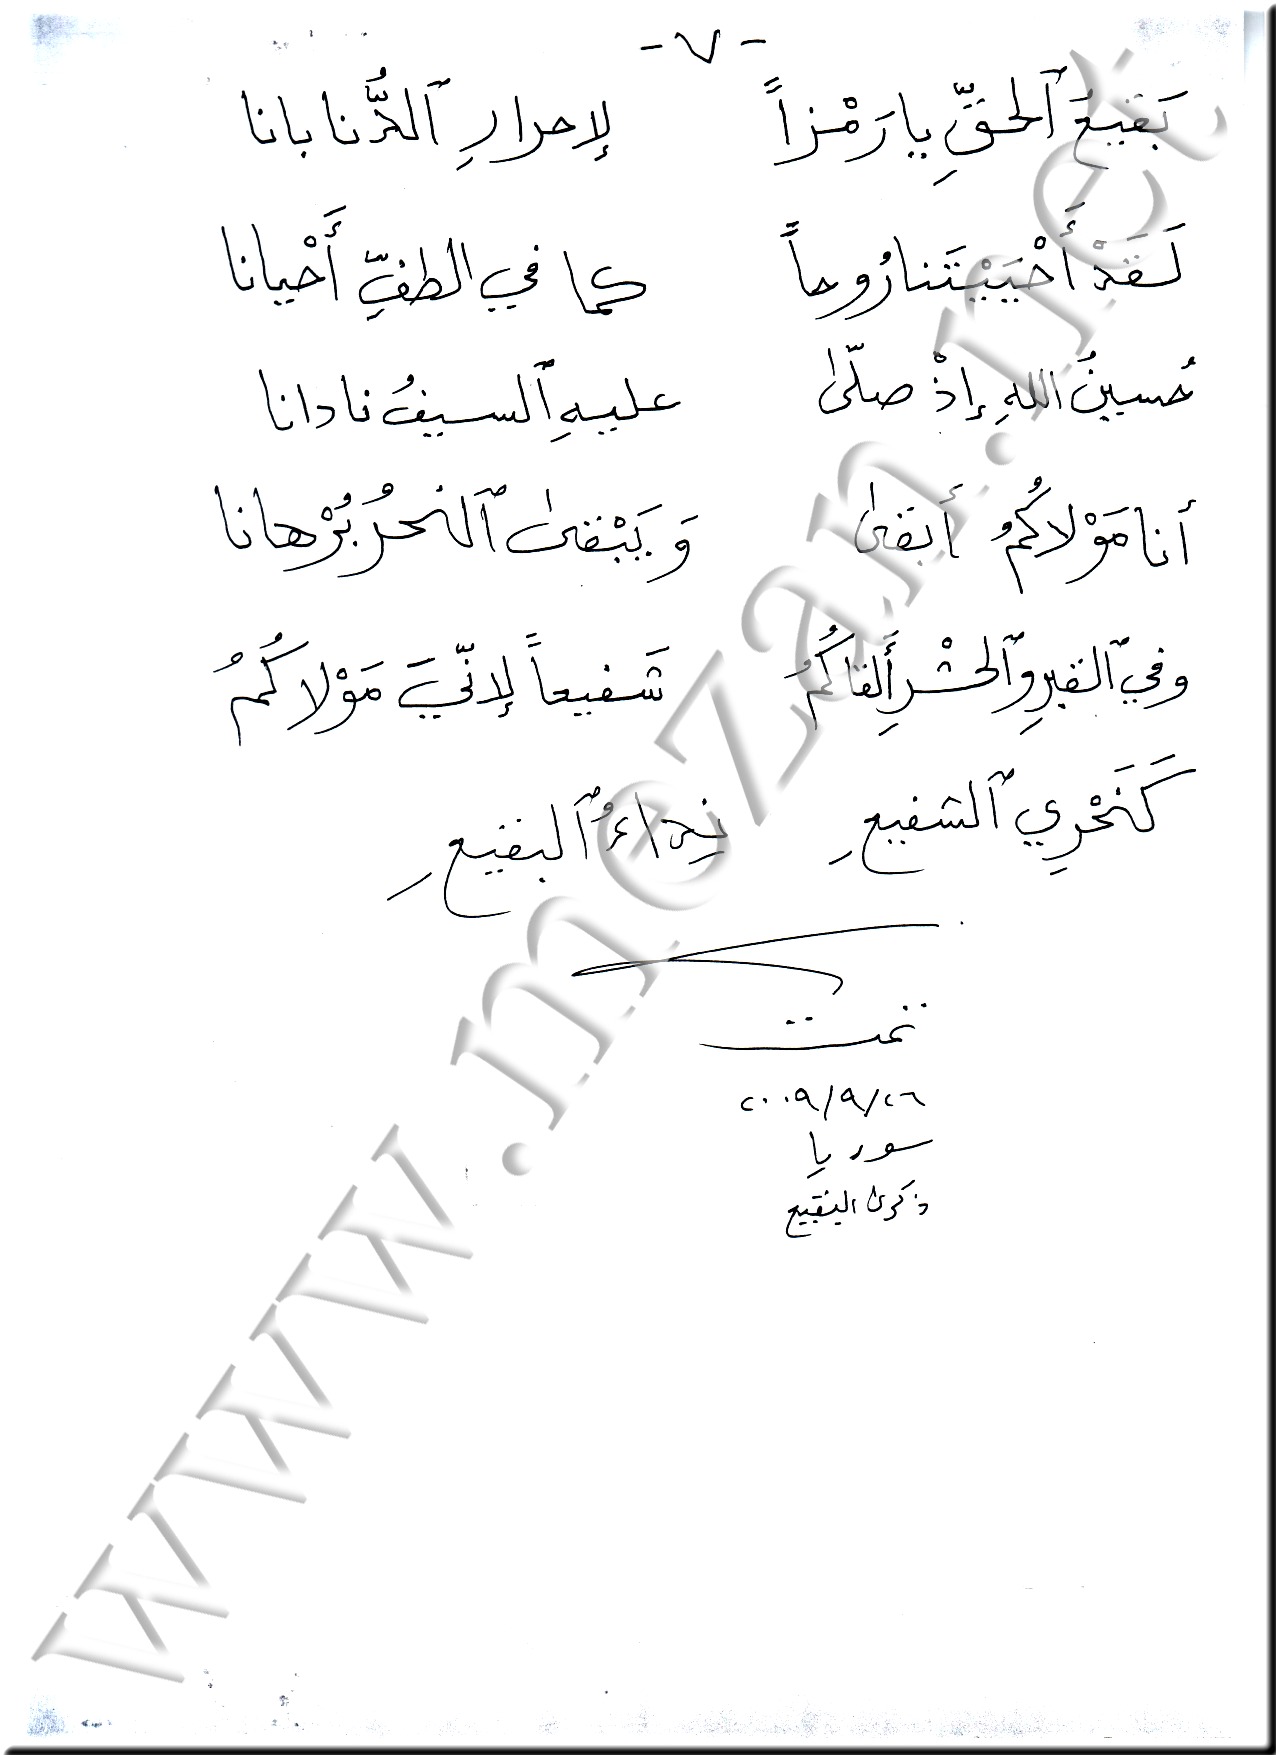 - ٧ -
بَقيعَ ٱلحَقِّ يا رَمْزاً لِاحرارِ ٱلدُّنا بانا
لَقَدْ أَحْيَيْتَنا رُوحاً كما في الطفِّ أَحْيانا
حُسينُ اللهِ إذْ صلّىٰ عليهِ ٱلسيفُ نادانا
أنا مَوْلاكُمُ أبقىٰ وَ يَبْقىٰ ٱلنحرُ بُرْهانا
وفي ٱلقبرِ وٱلحشْرِ أَلقاكُمُ شَفيعاً لِانّيَ مَوْلاكُمُ
كَنَحْرِي ٱلشفيعِ نِداءُ ٱلبقيعِ
تمت
٢٠٠٩/٩/٢٦
سوريا
ذكرىٰ البقيع
www.mezan.net